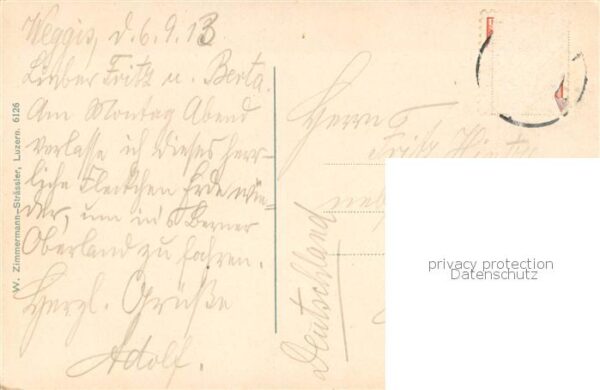 Weggis, d. 6. 9. 13
Lieber Fritz u. Berta.
Am Montag Abend
verlasse ich dieses herr-
liche Fleckchen Erde wie-
der, um in's Berner
Oberland zu fahren.
Herzl. Grüße
Adolf.
W. Zimmermann-Strässler, Luzern. 6126
Herrn
Fritz
neb
Deutschland
privacy protection
Datenschutz